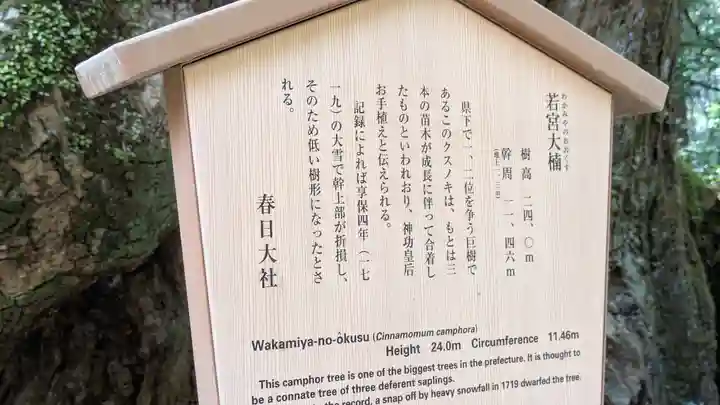 わかみやのおおくす
若宮大楠
樹高 二四、〇m
幹周 一一、四六m
(地上一、三m)
県下で一、二位を争う巨樹で
あるこのクスノキは、もとは三
本の苗木が成長に伴って合着し
たものといわれおり、神功皇后
お手植えと伝えられる。
記録によれば享保四年(一七
一九)の大雪で幹上部が折損し、
そのため低い樹形になったとさ
れる。
春日大社
Wakamiya-no-ôkusu (Cinnamomum camphora)
Height 24.0m Circumference 11.46m
This camphor tree is one of the biggest trees in the prefecture. It is thought to
be a connate tree of three deferent saplings.
the record, a snap off by heavy snowfall in 1719 dwarfed the tree